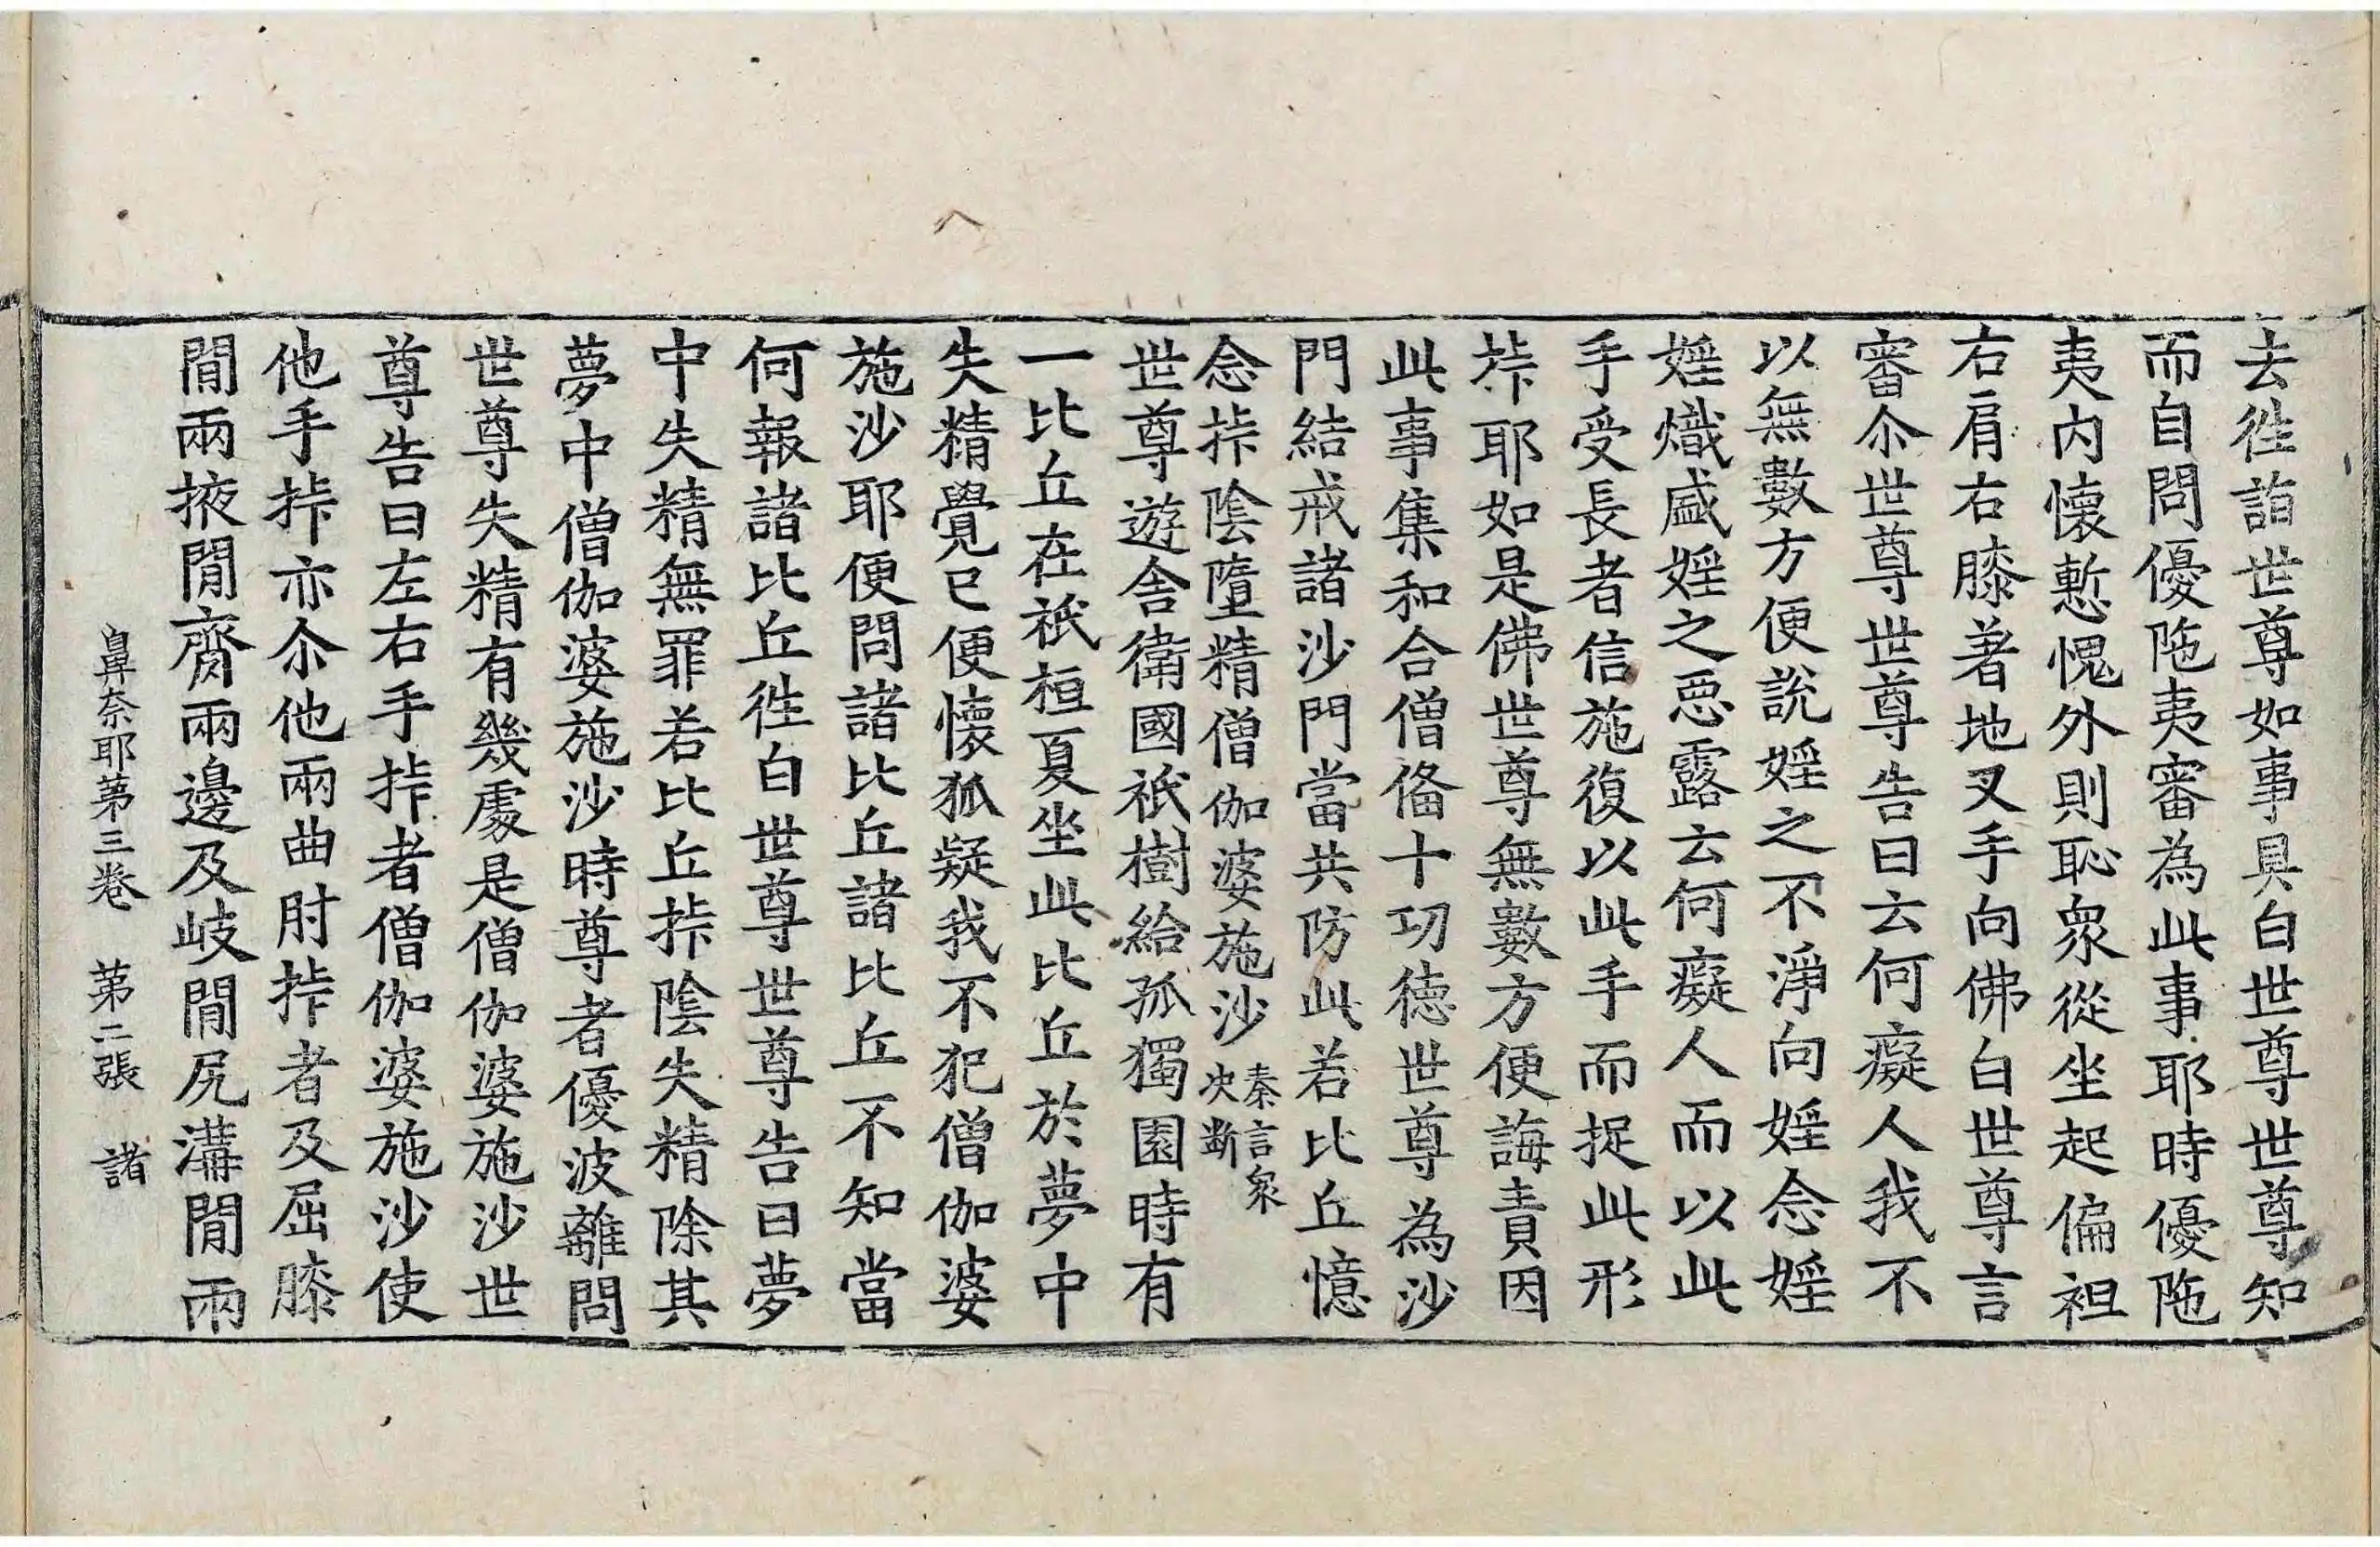 去徃詣世尊如事具白世尊世尊知
而自問優陁夷審為此事耶時優陁
夷内懷慙愧外則恥衆從坐起偏袒
右肩右膝著地叉手向佛白世尊言
審尒世尊世尊告曰云何癡人我不
以無數方便說婬之不淨向婬念婬
婬熾盛婬之惡露云何癡人而以此
手受長者信施復以此手而捉此形
挊耶如是佛世尊無數方便誨責因
此事集和合僧俻十㓛德世尊為沙
門結戒諸沙門當共防此若比丘憶
念挊陰墮精僧伽婆施沙秦言衆决断
世尊遊舎衛國祇樹給孤獨園時有
一比丘在祇桓夏坐此比丘於夢中
失精覺已便懷狐疑我不犯僧伽婆
施沙耶便問諸比丘諸比丘不知當
何報諸比丘徃白世尊世尊告曰夢
中失精無罪若比丘挊陰失精除其
夢中僧伽婆施沙時尊者優波離問
世尊失精有幾處是僧伽婆施沙世
尊告曰左右手挊者僧伽婆施沙使
他手挊亦尒他兩曲肘挊者及屈膝
閒兩掖閒齎兩邊及岐閒尻溝閒兩
鼻奈耶第三卷 第二張 諸